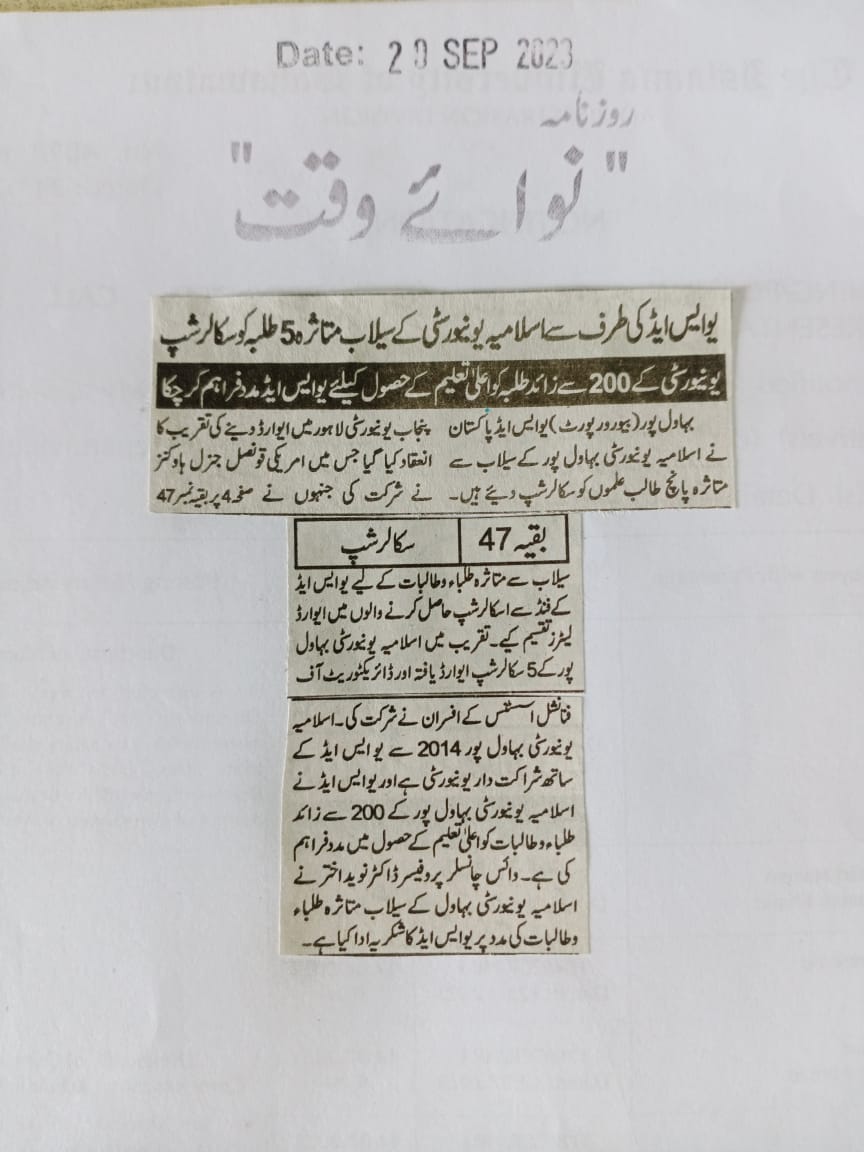 Date: 20 SEP 2023
روزنامہ
"نوائے وقت"
یو ایس ایڈ کی طرف سے اسلامیہ یونیورسٹی کے سیلاب متاثرہ 5 طلبہ کو سکالرشپ
یونیورسٹی کے 200 سے زائد طلبہ کو اعلیٰ تعلیم کے حصول کیلئے یو ایس ایڈ مدد فراہم کر چکا
بہاول پور (بیورورپورٹ) یو ایس ایڈ پاکستان
نے اسلامیہ یونیورسٹی بہاول پور کے سیلاب سے
متاثرہ پانچ طالب علموں کو سکالرشپ دیئے ہیں۔
پنجاب یونیورسٹی لاہور میں ایوارڈ دینے کی تقریب کا
انعقاد کیا گیا جس میں امریکی قونصل جنرل ہاوکنز
نے شرکت کی جنہوں نے صفحہ 4 پر بقیہ نمبر 47
بقیہ 47 سکالرشپ
سیلاب سے متاثرہ طلباء و طالبات کے لیے یو ایس ایڈ
کے فنڈ سے اسکالرشپ حاصل کرنے والوں میں ایوارڈ
لیٹرز تقسیم کیے۔ تقریب میں اسلامیہ یونیورسٹی بہاول
پور کے 5 سکالرشپ ایوارڈ یافتہ اور ڈائریکٹوریٹ آف
فنانشل اسسٹنس کے افسران نے شرکت کی۔ اسلامیہ
یونیورسٹی بہاول پور 2014 سے یو ایس ایڈ کے
ساتھ شراکت دار یونیورسٹی ہے اور یو ایس ایڈ نے
اسلامیہ یونیورسٹی بہاول پور کے 200 سے زائد
طلباء و طالبات کو اعلیٰ تعلیم کے حصول میں مدد فراہم
کی ہے۔ وائس چانسلر پروفیسر ڈاکٹر نوید اختر نے
اسلامیہ یونیورسٹی بہاول کے سیلاب متاثرہ طلباء
و طالبات کی مدد پر یو ایس ایڈ کا شکریہ ادا کیا ہے۔